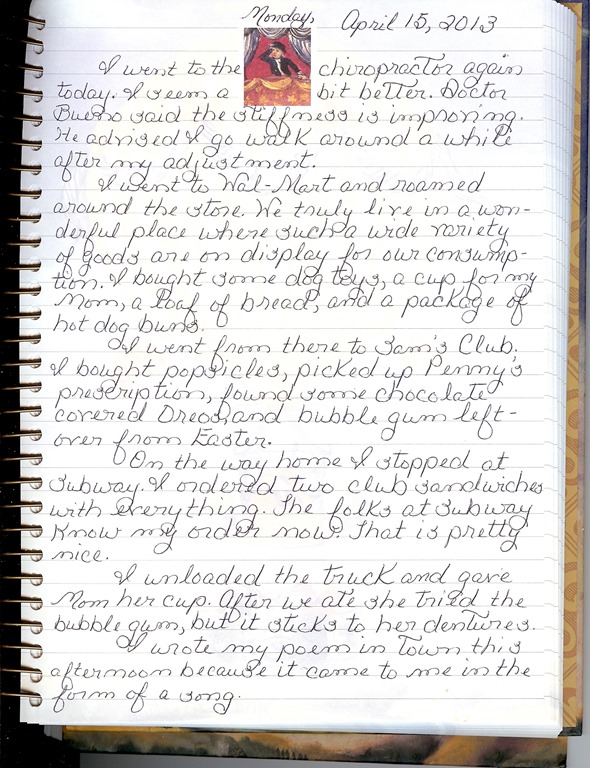 Monday, April 15, 2013
I went to the chiropractor again
today. I seem a bit better. Doctor
Bueno said the stiffness is improving.
He advised I go walk around a while
after my adjustment.
I went to Wal-Mart and roamed
around the store. We truly live in a won-
derful place where such a wide variety
of goods are on display for our consump-
tion. I bought some dog toys, a cup for my
Mom, a loaf of bread, and a package of
hot dog buns.
I went from there to Sam's Club.
I bought popsicles, picked up Penny's
prescription, found some chocolate
covered Oreos, and bubble gum left-
over from Easter.
On the way home I stopped at
Subway. I ordered two club sandwiches
with everything. The folks at Subway
know my order now. That is pretty
nice.
I unloaded the truck and gave
Mom her cup. After we ate she tried the
bubble gum, but it sticks to her dentures.
I wrote my poem in town this
afternoon because it came to me in the
form of a song.